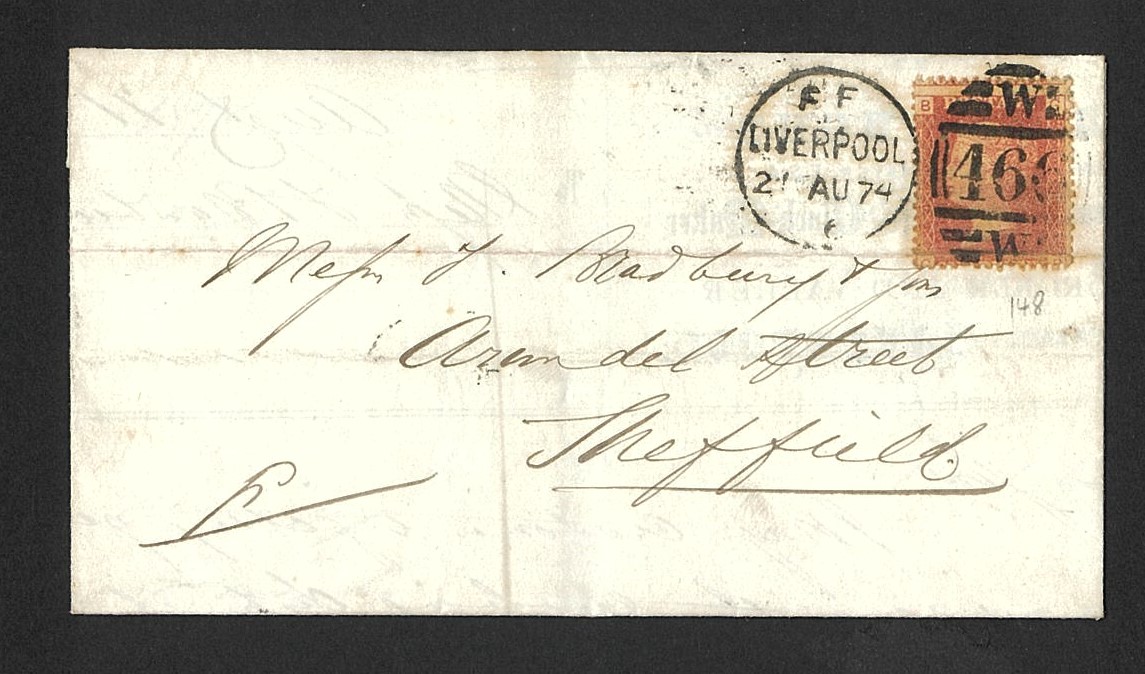 F F
LIVERPOOL
21 AU 74
6
B
W
466
W
148
Messrs T. Bradbury & Sons
Arundel Street
Sheffield